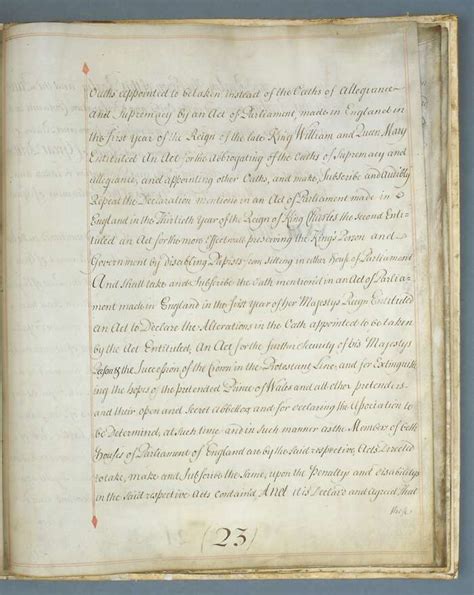 Oaths appointed to be taken instead of the Oaths of Allegiance
And Supremacy by an Act of Parliament made in England in
the first year of the Reign of the late King William and Queen Mary
Entituled An Act for the Abrogating of the Oaths of Supremacy and
allegiance, and appointing other Oaths, and make, Subscribe and Audibly
Repeat the Declaration mention'd in an Act of Parliament made in
England in the Thirtieth Year of the Reign of King Charles the Second Enti-
tuled an Act for the more Effectual preserving the Kings Person and
Government by disabling Papists from sitting in either House of Parliament
And shall take and Subscribe the Oath mention'd in an Act of Parlia-
ment made in England in the first year of her Majestys Reign Entituled
an Act to Declare the Alterations in the Oath appointed to be taken
by the Act Entituled, An Act for the further Security of his Majestys
Person & the Succession of the Crown in the Protestant Line, and for Extinguish
ing the hopes of the pretended Prince of Wales and all other pretenders
and their open and Secret Abbettors and for declaring the Association to
be Determined, at Such time and in Such manner as the Members of both
Houses of Parliament of England are by the Said respective Acts Directed
to take, make and Subscribe the Same, upon the Penaltys and disabilitys
in the Said respective Acts Contain'd, And it is Declar'd and Agreed That
(23)